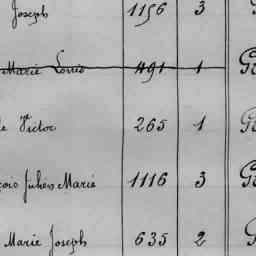 Joseph 1156 3
Marie Louis 491 1
de Victor 265 1
çois Julien Marie 1116 3
Marie Joseph 635 2